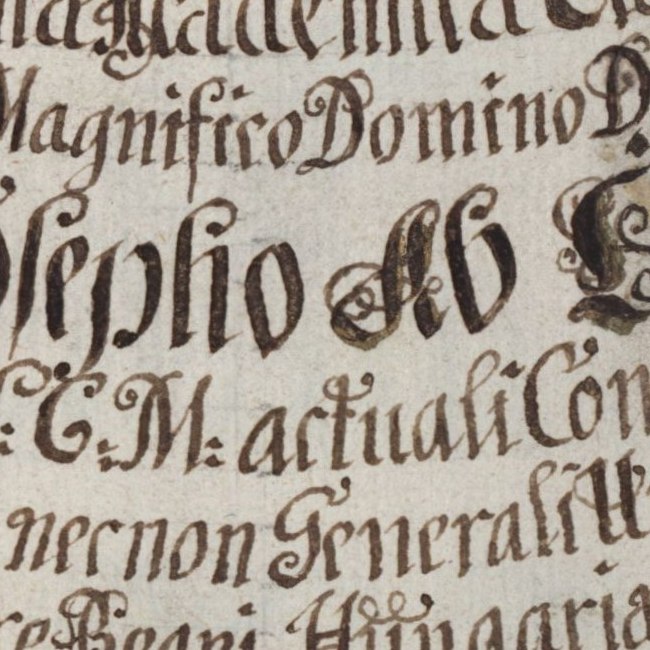 Magnifico Domino D
osepho Ab
C: M: actuali Con
necnon Generali
Regni Hungaria